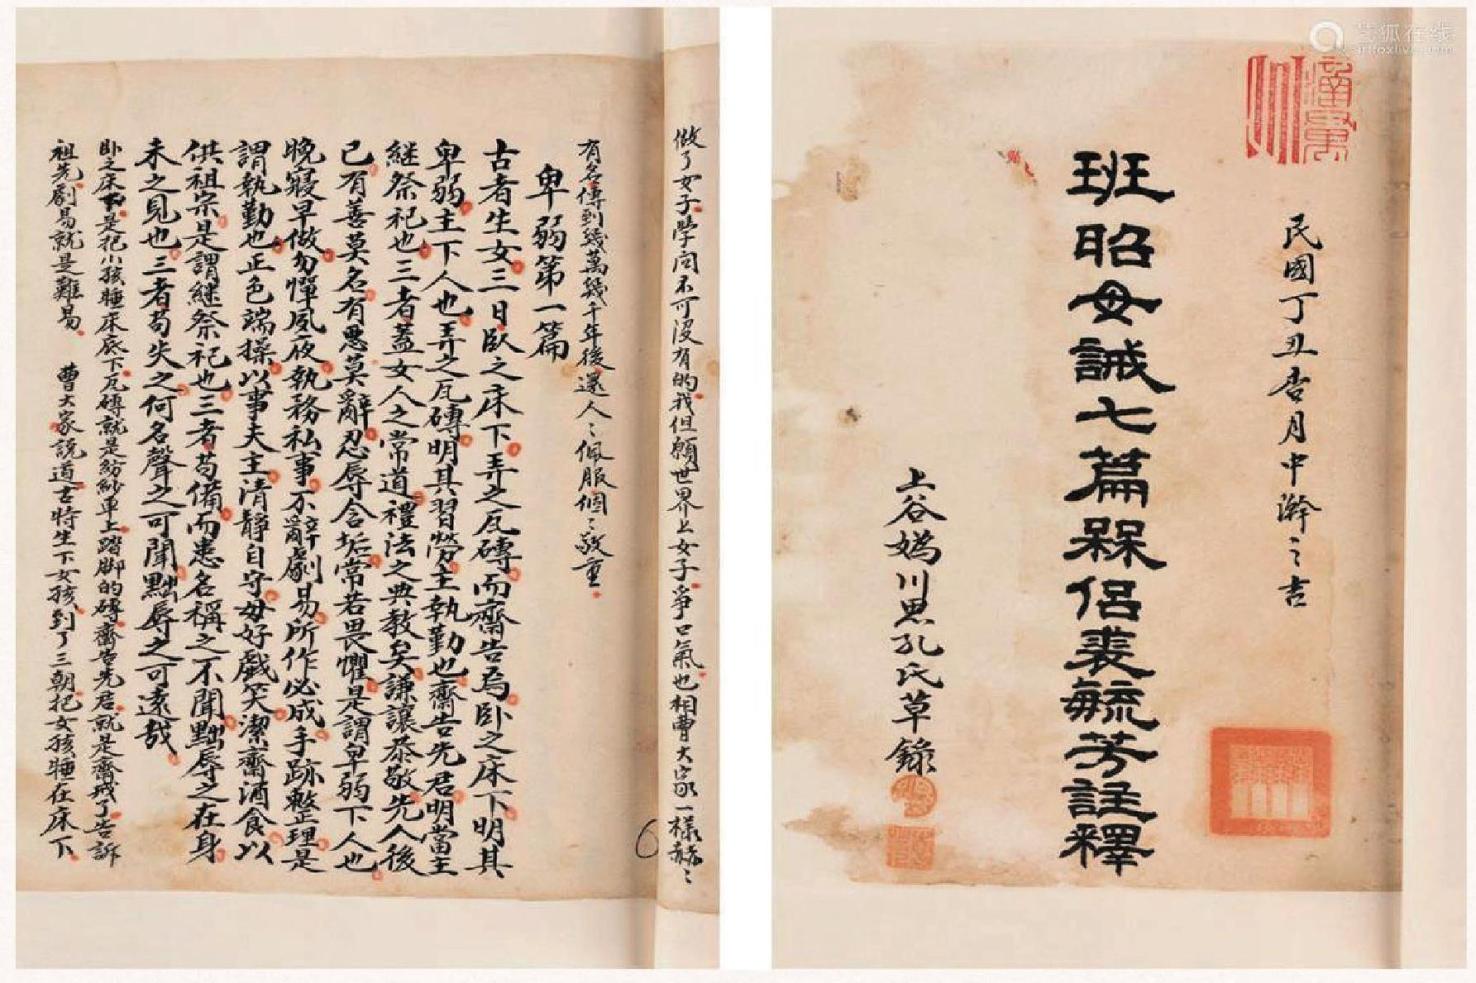 民國丁丑杏月中澣之吉
班昭女誡七篇槑侶裴毓芳註釋
上谷媯川思孔氏草錄
做了女子學問不可沒有的我但願世界上女子爭口氣也相曹大家一樣赫〻
有名傳到幾萬幾千年後還人〻佩服個〻敬重
卑弱第一篇
古者生女三日臥之床下弄之瓦磚而齋告焉卧之床下明其
卑弱主下人也弄之瓦磚明其習勞主執勤也齋告先君明當主
継祭祀也三者蓋女人之常道禮法之典教矣謙讓恭敬先人後
己有善莫名有惡莫辭忍辱含垢常若畏懼是謂卑弱下人也
晚寢早做勿憚夙夜執務私事不辭劇易所作必成手跡整理是
謂執勤也正色端操以事夫主清靜自守毋好戲笑潔齋酒食以
供祖宗是謂継祭祀也三者苟備而患名稱之不聞黜辱之在身
未之見也三者苟失之何名聲之可聞黜辱之可遠哉
卧之床下是把小孩睡床底下瓦磚就是紡紗車上踏脚的磚齋告先君就是齋戒了告訴
祖先劇易就是難易 曹大家說道古時生下女孩到了三朝把女孩睡在床下